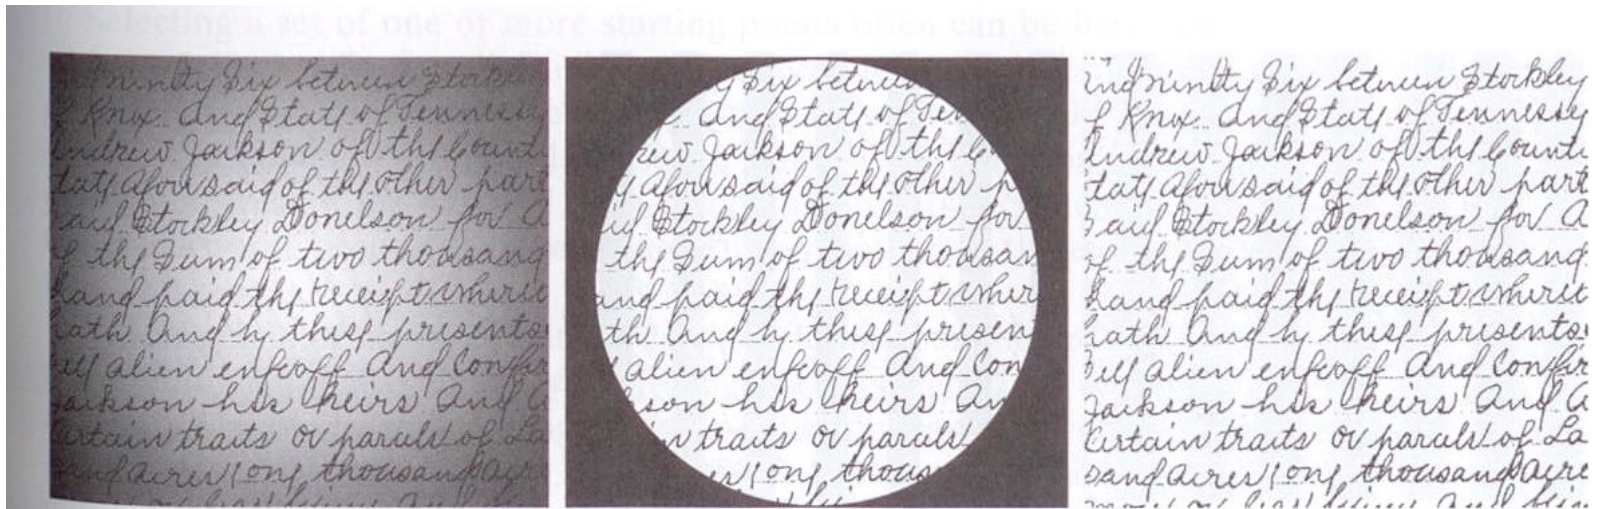 selecting a set of one or more starting points often can be
ninty Six between Stockley
Knox. And State of Tennessey
Andrew Jackson of the Count
tate aforesaid of the other part
aid Stockley Donelson for a
of the Sum of two thousand
hand paid the receipt where
hath And by these presents
ell alien enfeoff And Confir
Jackson his heirs And a
ertain traits or parcels of La
sand acres one thousand acre
Six betwe
And State of Ten
rew Jackson of the Co
aforesaid of the other p
id Stockley Donelson for
the Sum of two thousan
and paid the receipt wher
th And by these presen
alien enfeoff And Con
son his heirs An
in traits or parcels
one thous
and ninty Six between Stockley
f Knox. And State of Tennessey
Andrew Jackson of the Count
tate aforesaid of the other part
aid Stockley Donelson for a
of the Sum of two thousand
hand paid the receipt where
hath And by these presents
ell alien enfeoff And Confir
Jackson his heirs And a
ertain traits or parcels of La
sand acres one thousand acre